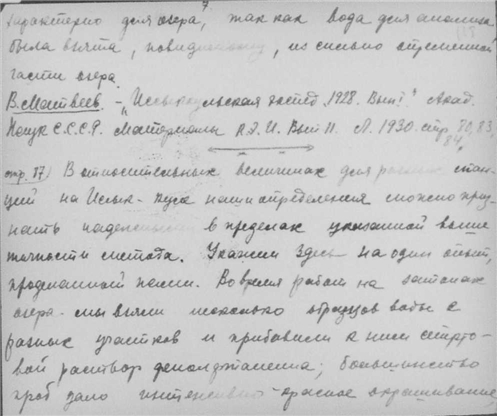 характерно для озера, так как вода для анализа
была взята, повидимому, из сильно опресненной
части озера.
В. Матвеев – „Иссыккульская экспед. 1928. Вып I." Акад.
Наук С.С.С.Р. Материалы К.Э.И. Вып 11. Л. 1930. стр 80, 83,
84,
стр. 87) В относительных величинах для разных стан-
ций на Иссык-Куле наши определения можно приз-
нать надежными в пределах указанной выше
точности метода. Укажем здесь на один опыт,
проделанный нами. Во время работ на затонах
озера мы взяли несколько образцов воды с
разных участков и прибавили к ним спирто-
вой раствор фенолфталеина; большинство
проб дало интенсивно-красное окрашивание,